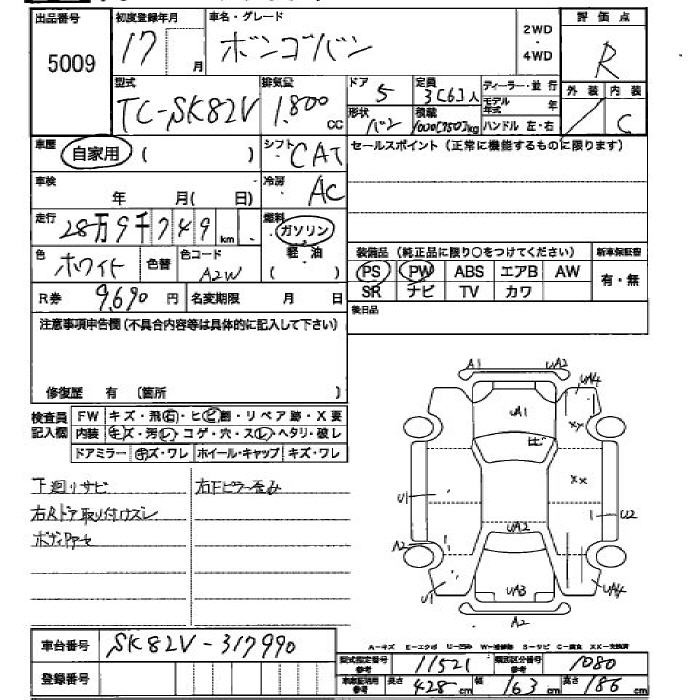 出品番号 初度登録年月 車名・グレード 評価点
5009 17 月 ボンゴバン 2WD・4WD R
型式 排気公 ドア 定員 ディーラー・並行 外装 内装
TC-SK82V 1,800 CC 5 3(6)人 モデル年式 年
形状 バン 積載 1000(750)kg ハンドル 左・右 C
車歴 自家用 ( ) シフト CAT セールスポイント(正常に機能するものに限ります)
車検 年 月( 日) 冷房 AC
走行 28万9千749km 燃料 ガソリン 軽油 ( )
色 ホワイト 色替 色コード A2W
装備品(純正品に限り○をつけてください) 新車保証書
PS PW ABS エアB AW 有・無
SR ナビ TV カワ
R券 9,690円 名変期限 月 日 後日品
注意事項申告欄(不具合内容等は具体的に記入して下さい)
修復歴 有 〔箇所 〕
検査員記入欄 FW キズ・飛石・ヒビ・リペア跡・X要
内装 キズ・汚レ・コゲ・穴・スレ・ヘタリ・破レ
ドアミラー キズ・ワレ ホイール・キャップ キズ・ワレ
下廻リサビ 右Fピラー歪み
右Rドア取り付けズレ
A1 UA2
UA4
UA1
XX
ヒビ
XX
U1
U2
UA2
A2
UA3
U1 UA4
A2
A-キズ E-エクボ U-凹み W-補修跡 S-サビ C-腐食 XX-交換済
車台番号 SK82V-317990
型式指定番号 11521 類別区分番号 1080
登録番号
長さ 428 cm 幅 163 cm 高さ 186 cm